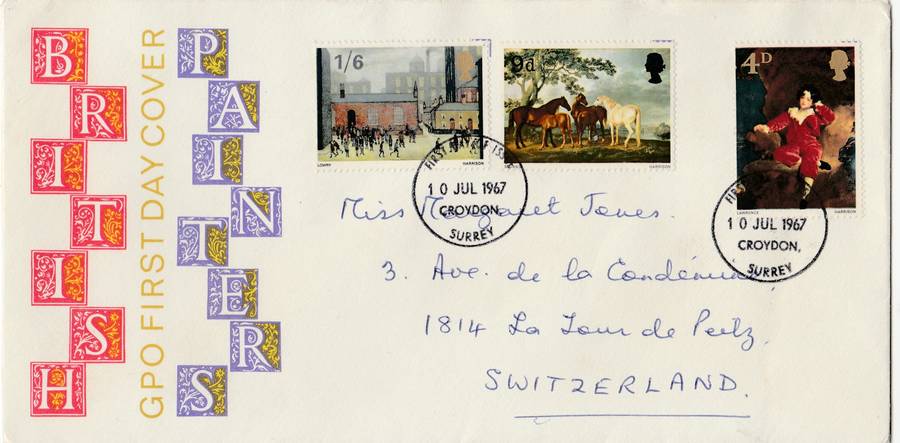 BRITISH
GPO FIRST DAY COVER
PAINTERS
1/6
LOWRY HARRISON
9d
HARRISON
4D
LAWRENCE HARRISON
FIRST DAY OF ISSUE
10 JUL 1967
CROYDON,
SURREY
FIRST
10 JUL 1967
CROYDON,
SURREY
Miss Margaret Jones.
3. Ave. de la
1814 La Tour de Peilz
SWITZERLAND